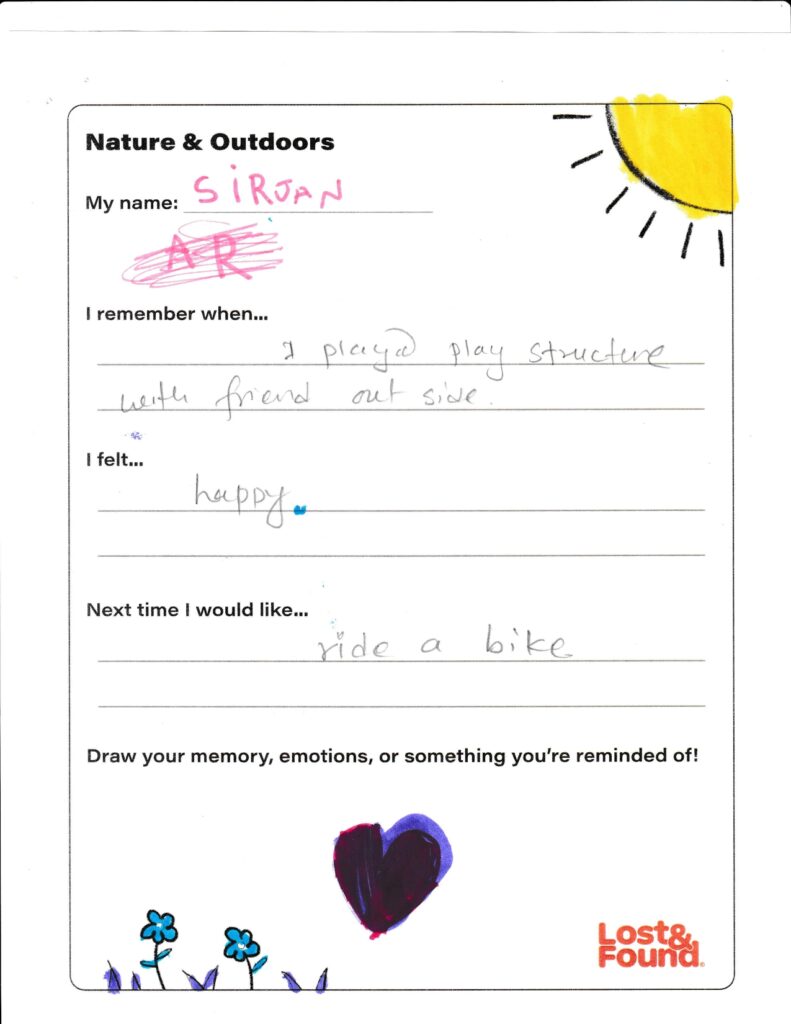 Nature & Outdoors
My name: SiRJAN
AR
I remember when...
I playd play structure
with friend out side.
I felt...
happy.
Next time I would like...
ride a bike
Draw your memory, emotions, or something you're reminded of!
Lost&
Found®